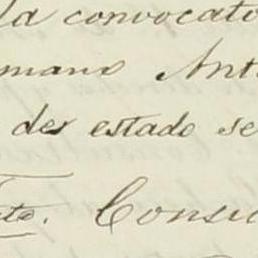 la convocato
mano Ant
des estado se
to. Consi